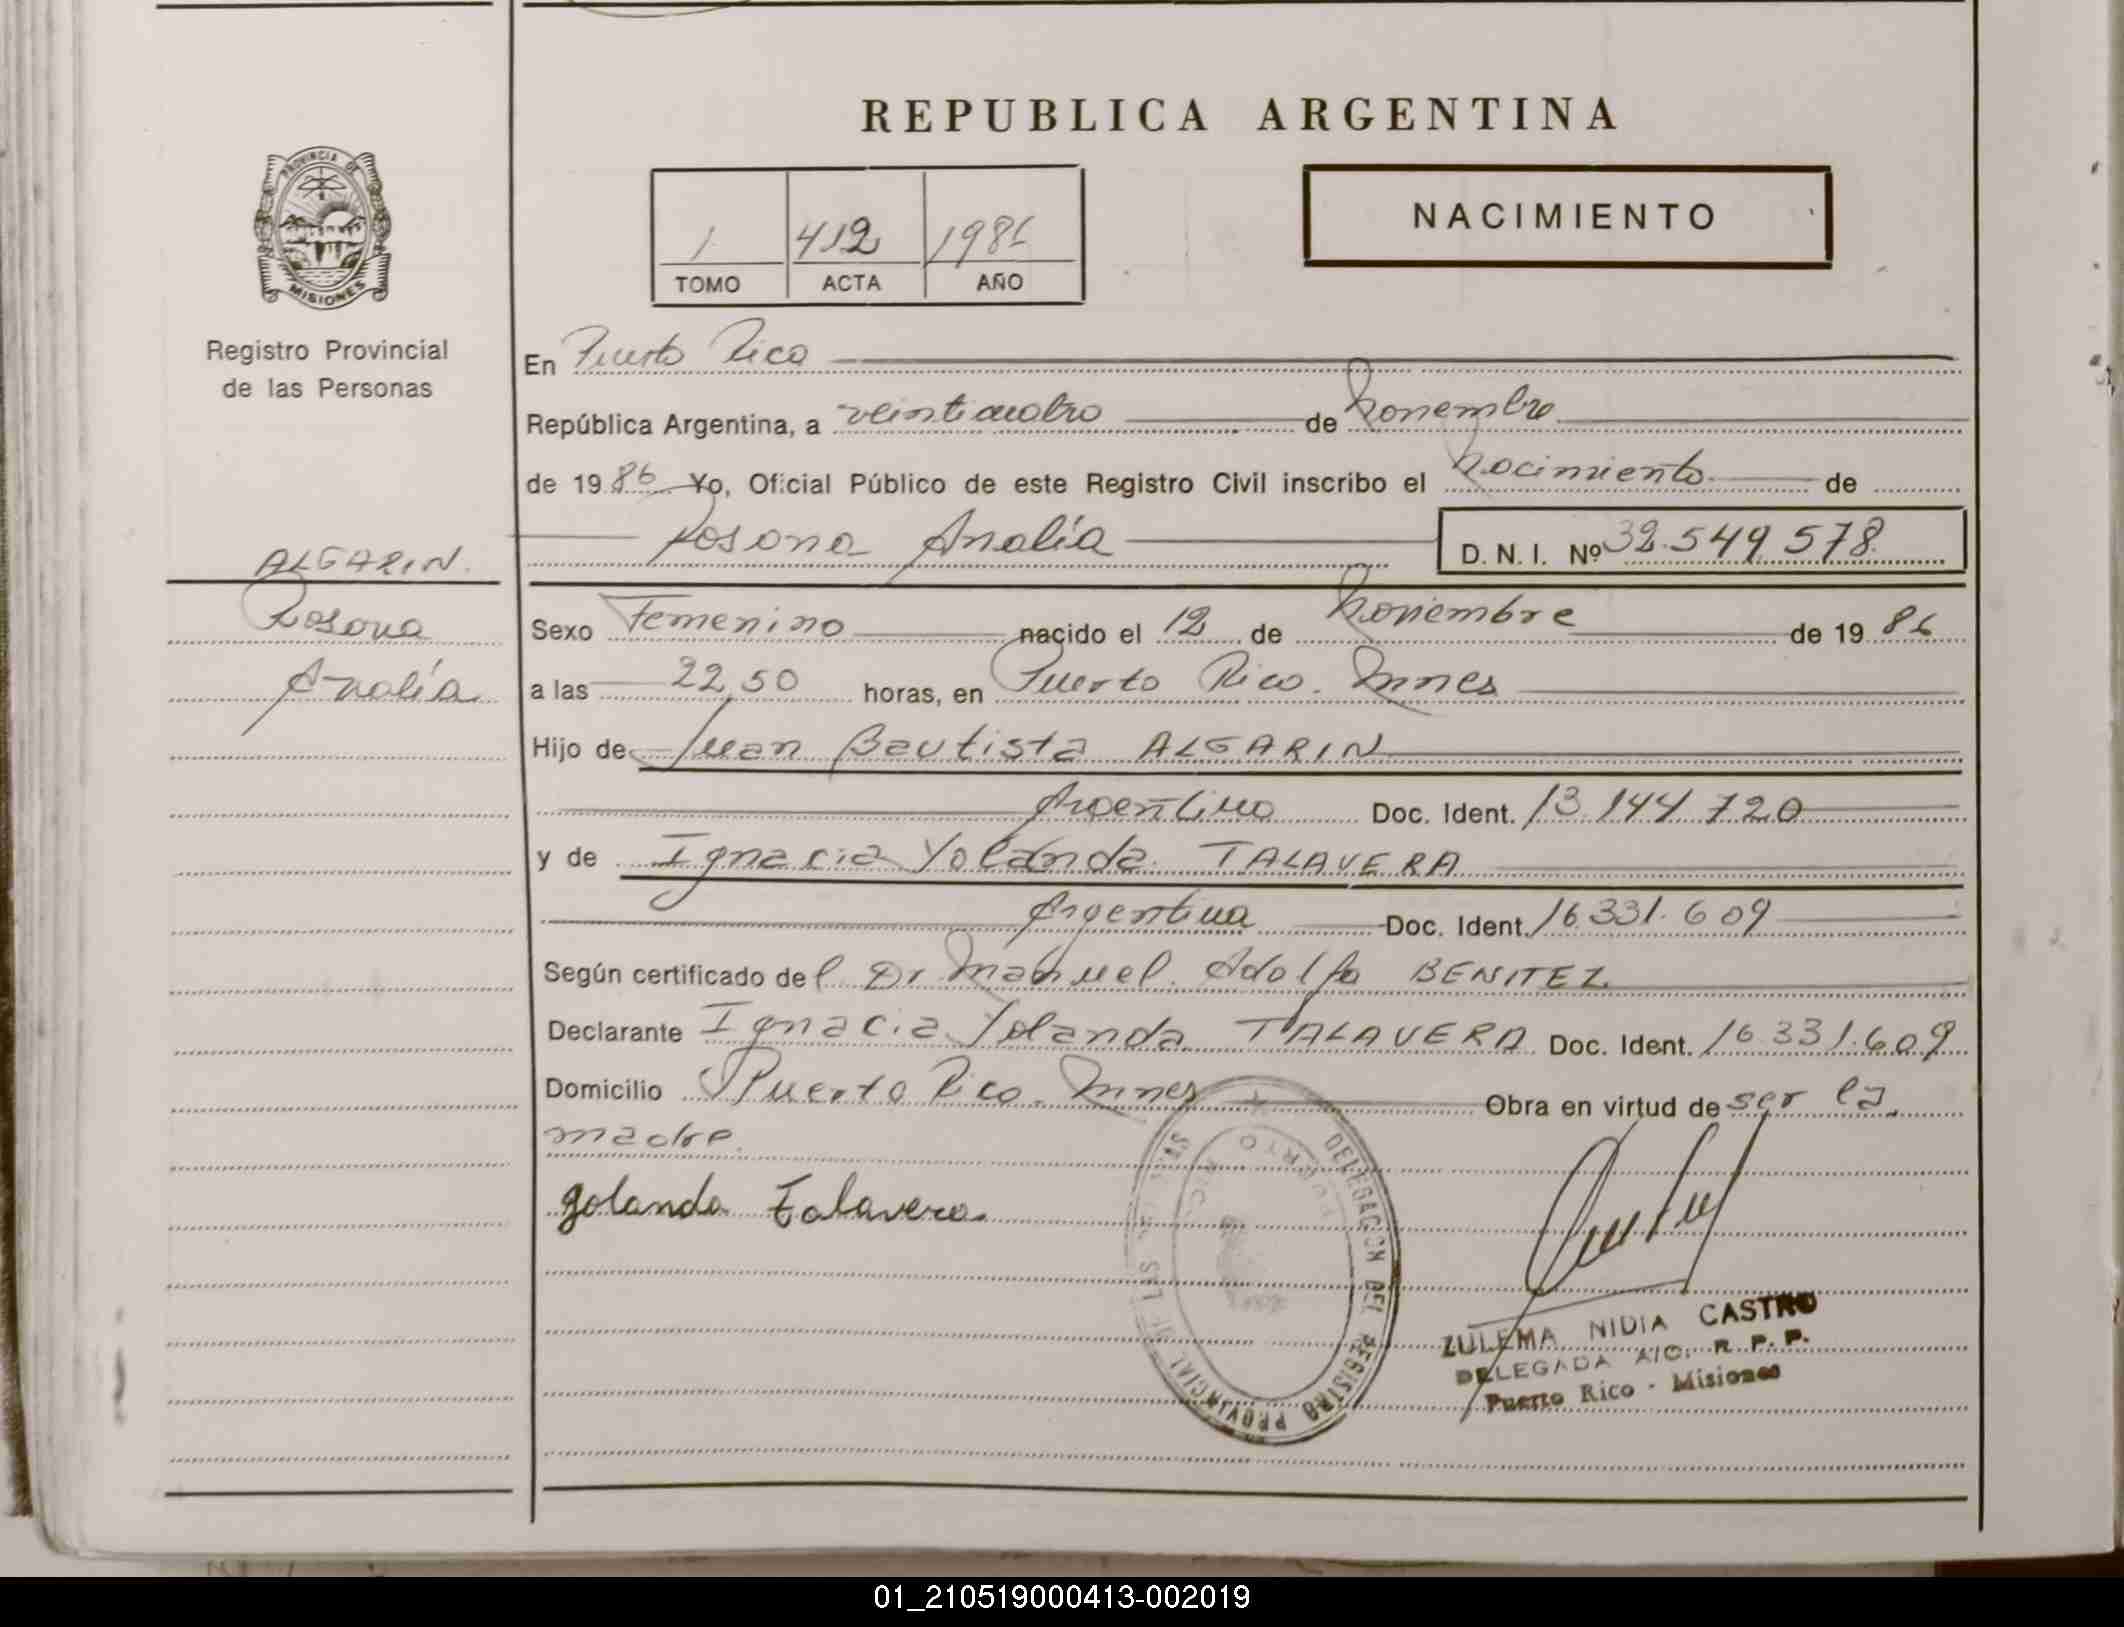 REPUBLICA ARGENTINA
PROVINCIA DE
MISIONES
Registro Provincial
de las Personas
NACIMIENTO
1 412 1986
TOMO ACTA AÑO
En Puerto Rico
República Argentina, a veinticuatro de noviembre
de 1986 Yo, Oficial Público de este Registro Civil inscribo el nacimiento de
Rosana Analía D. N. I. Nº 32.549.578
ALGARIN
Rosana
Analía
Sexo Femenino nacido el 12 de noviembre de 1986
a las 22,50 horas, en Puerto Rico. Mnes
Hijo de Juan Bautista ALGARIN
Argentino Doc. Ident. 13.144.720
y de Ignacia Yolanda TALAVERA
Argentina Doc. Ident. 16.331.609
Según certificado del Dr Manuel Adolfo BENITEZ
Declarante Ignacia Yolanda TALAVERA Doc. Ident. 16.331.609
Domicilio Puerto Rico. Mnes Obra en virtud de ser la
madre.
Yolanda Talavera
DELEGACION DEL REGISTRO PROVINCIAL DE LAS
PUERTO RICO
ZULEMA NIDIA CASTRO
DELEGADA A/C. R. P. P.
Puerto Rico - Misiones
01_210519000413-002019